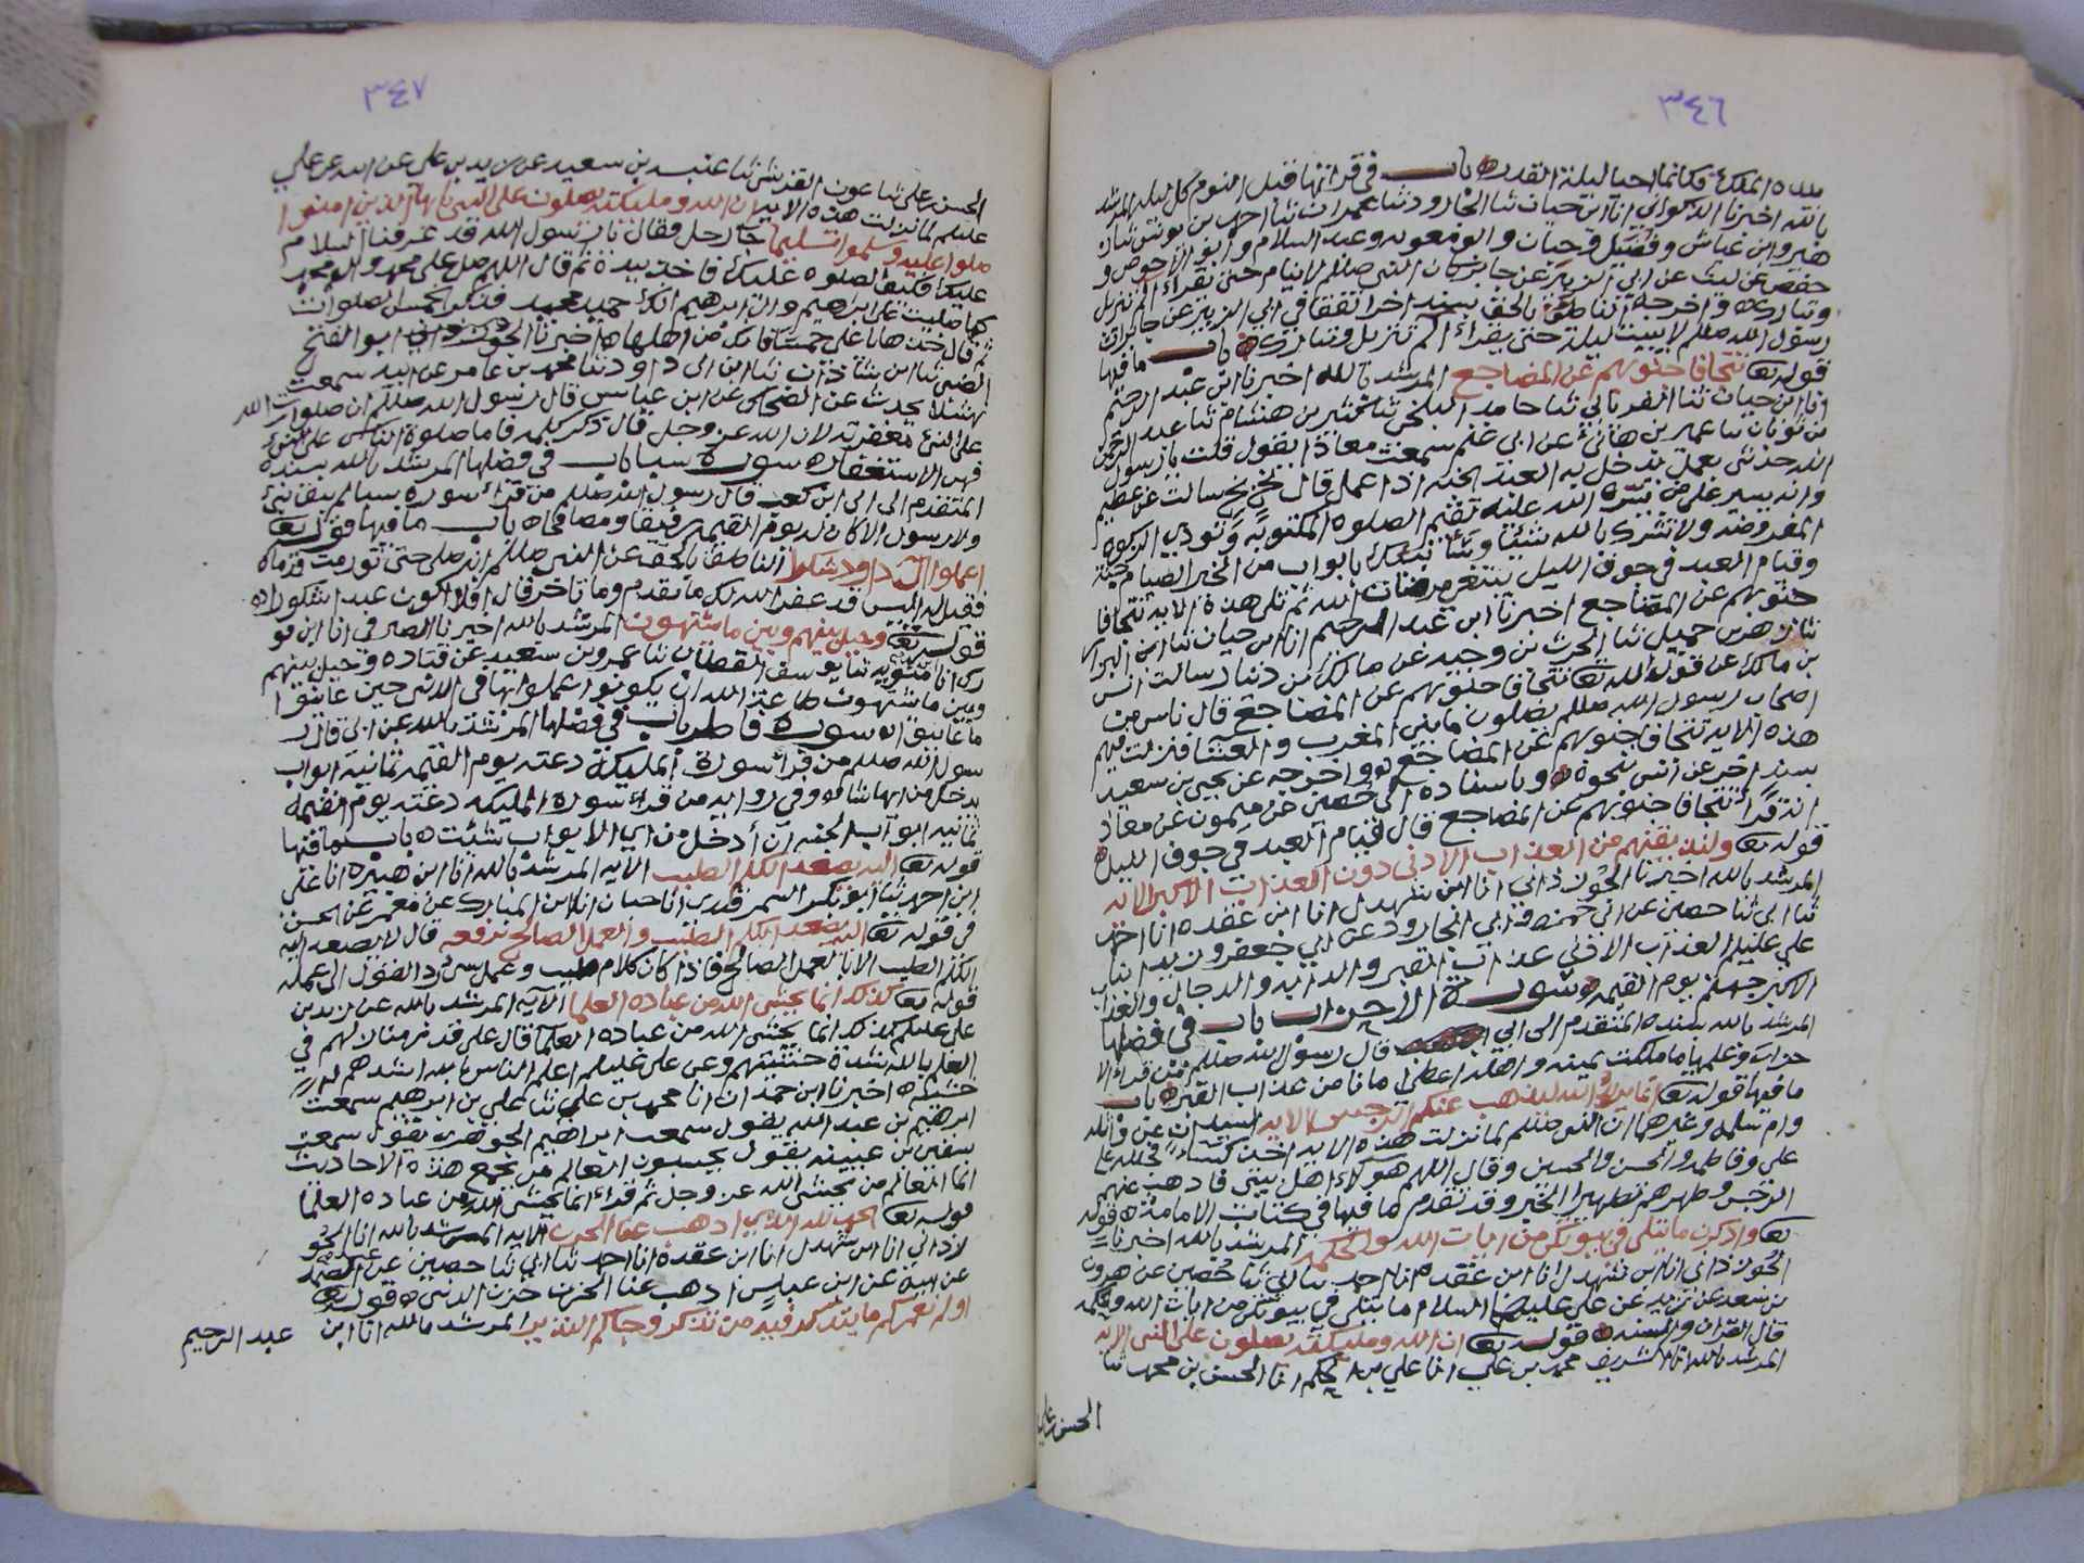 ٣٤٦
الملك فكانما احيا ليلة القدر باب في قرائتها قبل النوم كل ليله المرشد
بالله اخبرنا الذكواني انا ابن حيان ثنا الجارود ثنا عمران ثنا احمد بن يونس ثنا
وابن عياش وفضيل وحيان وابو معويه وعبد السلام وابو الاحوص و
حفص عن ليث عن ابي الزبير عن جابر كان النبي صللم لا ينام حتى تقراء الم تنزيل
وتبارك واخرجه الناطق بالحق بسند اخر اتفقا في ابي الزبير عن جابر ان
رسول الله صللم لا يبيت ليلة حتى يقراء الم تنزيل وتبارك باب ما فيها
قوله تع تتجافا جنوبهم عن المضاجع المرشد بالله اخبرنا ابن عبد الرحيم
انا ابن حيان ثنا الفريابي ثنا حامد البلخي ثنا بن هشام ثنا عبد الرحمن
بن ثوبان ثنا عمير بن هانئ عن ابن غنم سمعت معاذا يقول قلت يا رسول
الله حدثني بعمل يدخل به العبد الجنه اذا عمل قال بخ بخ سالت عن عظيم
وانه يسير على من يسره الله عليه تقيم الصلوه المكتوبه وتؤدي الزكوه
المفروضه ولا تشرك بالله شيئا وسأ نبئك بابواب من الخير الصيام جنة
وقيام العبد في جوف الليل يبتغي مرضات الله ثم تلى هذه الايه تتجافا
جنوبهم عن المضاجع اخبرنا ابن عبد الرحيم انا ابن حيان ثنا ابن البراء
ثنا بن جميل ثنا الحرث بن وجيه عن مالك بن دينار سالت انس
بن مالك عن قول الله تع تتجافا جنوبهم عن المضاجع قال ناس من
اصحاب رسول الله صللم يصلون ما بين المغرب والعشا فنزلت فيهم
هذه الايه تتجافا جنوبهم عن المضاجع واخرجه عن يحيى بن سعيد
بسند اخر عن انس نحوه وباسناده الى حصين عن ميمون عن معاذ
انه قرأ تتجافا جنوبهم عن المضاجع قال قيام العبد في جوف الليل
قوله تع ولنذيقنهم من العذاب الادنى دون العذاب الاكبر الايه
المرشد بالله اخبرنا الجوزذاني انا ابن شهدل انا ابن عقده انا احمد
ثنا ابي ثنا حصين عن ابي حمزه وابي الجارود عن ابي جعفر وزيد ابنا
علي عليلم العذاب الادنى عذاب القبر والدابه والدجال والعذاب
الاكبر جهنم يوم القيمه سورة الاحزاب باب في فضلها
المرشد بالله بسنده المتقدم الى ابي قال رسول الله صللم من قراء الا
حزاب وعلمها ما ملكت يمينه واهله اعطي امانا من عذاب القبر باب
ما فيها قوله تع انما يريد الله ليذهب عنكم الرجس الايه السيدان عن واثله
وام سلمه وغيرهما ان النبي صللم لما نزلت هذه الايه اخذ كساء فجلله على
علي وفاطمه والحسن والحسين وقال اللهم هؤلاء اهل بيتي فاذهب عنهم
الرجس وطهرهم تطهيرا الخبر وقد تقدم ما فيها في كتاب الامامة قوله
تع واذكرن ما يتلى في بيوتكن من ايات الله والحكمه المرشد بالله اخبرنا
الجوزذاني انا ابن شهدل انا ابن عقده انا احمد ثنا ابي ثنا حصين عن هرون
بن سعد عن زيد عن علي عليهما السلام ما يتلى في بيوتكن من ايات الله والحكمه
قال القران والسنه قوله تع ان الله ومليكته يصلون على النبي الايه
المرشد بالله انا الشريف محمد بن علي انا علي بن الحكم انا الحسن بن محمد ثنا
الحسن بن علي
٣٤٧
الحسن بن علي ثنا عون القرشي ثنا عنبسه بن سعيد عن زيد بن علي عن ابيه عن علي
عليلم لما نزلت هذه الايه ان الله ومليكته يصلون على النبي يا ايها الذين امنوا
صلوا عليه وسلموا تسليما جاء رجل فقال يا رسول الله قد عرفنا السلام
عليك فكيف الصلوه عليك فاخذ بيده ثم قال اللهم صل على محمد وال محمد
كما صليت على ابرهيم وال ابرهيم انك حميد مجيد فذكر الخمس الصلوات
ثم قال خذ هايا علي خمسا فانك من اهلها اخبرنا الجوزذاني ابو الفتح
الضبي ثنا ابن شاذان ثنا ابن ابي داود ثنا محمد بن عامر عن ابيه سمعت
نهشلا يحدث عن الضحاك عن ابن عباس قال رسول الله صللم ان صلوات الله
على النبي مغفرته لان الله عز وجل قال ذكر كلمه فاما صلوة الناس على النبي
فهي الاستغفار سورة سبا باب في فضلها المرشد بالله بسنده
المتقدم الى ابي ابن كعب قال رسول الله صللم من قراء سوره سبا لم يبقا نبي
ولا رسول الا كان له يوم القيمه رفيقا ومصافحا باب ما فيها قوله تع
اعملوا آل داود شكرا الناطق بالحق عن النبي صللم انه صلى حتى تورمت قدماه
فقيل له اليس قد غفر الله لك ما تقدم وما تاخر قال افلا اكون عبدا شكورا
قوله تع وحيل بينهم وبين ما يشتهون المرشد بالله اخبرنا الصيرفي انا ابن نو
رك انا متويه ثنا يوسف القطان ثنا عمرو بن سعيد عن قتاده وحيل بينهم
وبين ما يشتهون طاعة الله ان يكونوا عملوا بها في الدنيا حين عاينوا
ما عاينوا سورة فاطر باب في فضلها المرشد بالله عن ابي قال ر
سول الله صللم من قرأ سورة المليكة دعته يوم القيمه ثمانيه ابواب
يدخل من ايها شاء وفي روايه من قراء سورة المليكه دعته يوم القيمه
ثمانيه ابواب الجنه ان أدخل من اي الابواب شئت باب ما فيها
قوله تع اليه يصعد الكلم الطيب الايه المرشد بالله انا ابن هبيره انا علي
ابن احمد ثنا ابو بكر السمرقندي انا حبان انا ابن المبارك عن معمر عن الحسن
في قوله تع اليه يصعد الكلم الطيب والعمل الصالح يرفعه قال لا يصعد اليه
الكلم الطيب الا بالعمل الصالح فاذا كان كلام طيب وعمل سيئ رد القول الى عمله
قوله تع كذلك انما يخشى الله من عباده العلما الايه المرشد بالله عن زيد بن
علي عليلم كذلك انما يخشى الله من عباده العلما قال على قدر منازلهم في
العلم بالله شدة خشيتهم وعن علي عليلم اعلم الناس بالله اشدهم له
خشيه اخبرنا ابن حمدان انا محمد بن علي ثنا علي بن ابرهيم سمعت
ابرهيم بن عبد الله يقول سمعت ابراهيم الجوهري يقول سمعت
سفين بن عيينه يقول يحسبون العالم من يجمع هذه الاحاديث
انما العالم من يخشى الله عز وجل ثم قراء انما يخشى الله من عباده العلما
قوله تع الحمد لله الذي اذهب عنا الحزن الايه المرشد بالله انا الجو
زذاني انا ابن شهدل انا ابن عقدة انا احمد ثنا ابي ثنا حصين عن عبد الصمد
عن ابيه عن ابن عباس اذهب عنا الحزن حزن الدنيا قوله تع
اولم نعمركم ما يتذكر فيه من تذكر وجاءكم النذير المرشد بالله انا ابن عبد الرحيم